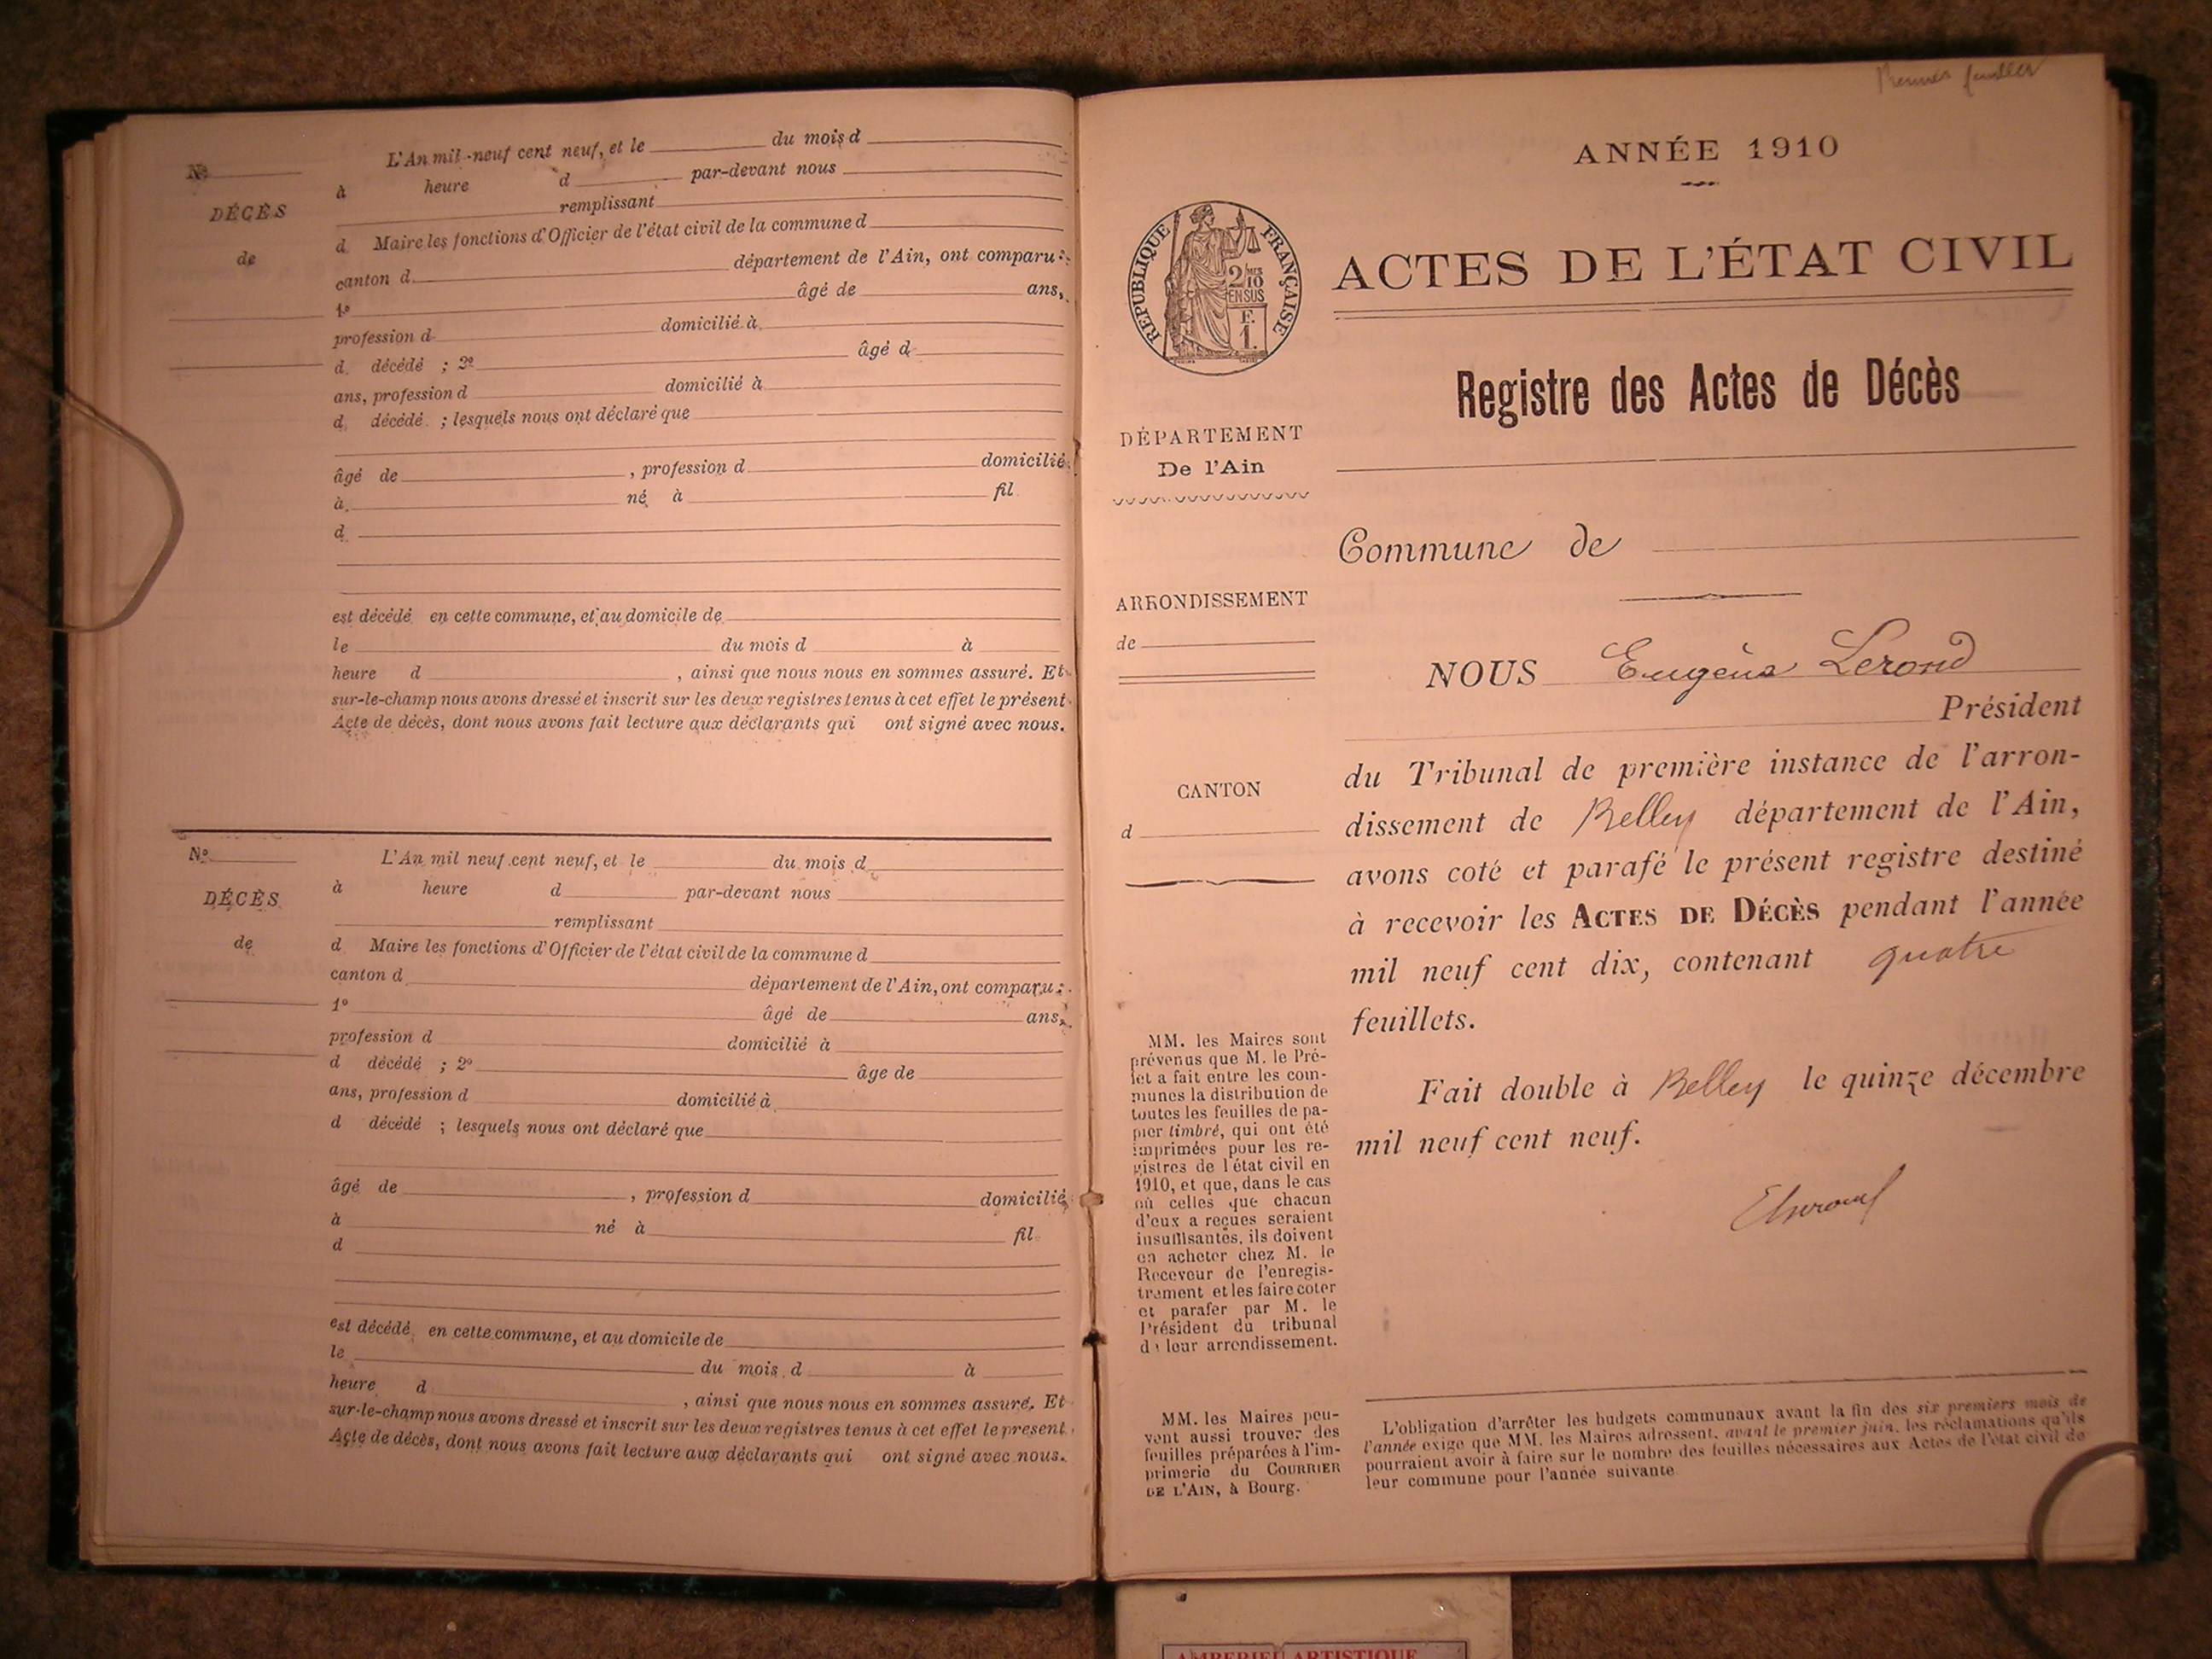 N°
DÉCÈS
de
L'An mil-neuf cent neuf, et le du mois d
à heure d par-devant nous
remplissant
d Maire les fonctions d'Officier de l'état civil de la commune d
canton d département de l'Ain, ont comparu :
1° âgé de ans,
profession d domicilié à
d décédé ; 2° âgé d
ans, profession d domicilié à
d décédé ; lesquels nous ont déclaré que
âgé de , profession d domicilié
à né à fil
d
est décédé en cette commune, et au domicile de
le du mois d à
heure d , ainsi que nous nous en sommes assuré. Et
sur-le-champ nous avons dressé et inscrit sur les deux registres tenus à cet effet le présent
Acte de décès, dont nous avons fait lecture aux déclarants qui ont signé avec nous.
N°
DÉCÈS
de
L'An mil neuf cent neuf, et le du mois d
à heure d par-devant nous
remplissant
d Maire les fonctions d'Officier de l'état civil de la commune d
canton d département de l'Ain, ont comparu :
1° âgé de ans,
profession d domicilié à
d décédé ; 2° âge de
ans, profession d domicilié à
d décédé ; lesquels nous ont déclaré que
âgé de , profession d domicilié
à né à fil
d
est décédé en cette commune, et au domicile de
le du mois d à
heure d , ainsi que nous nous en sommes assuré. Et
sur-le-champ nous avons dressé et inscrit sur les deux registres tenus à cet effet le present
Acte de décès, dont nous avons fait lecture aux déclarants qui ont signé avec nous.
ANNÉE 1910
RÉPUBLIQUE FRANÇAISE
2/10
EN SUS
F.
1.
ACTES DE L'ÉTAT CIVIL
Registre des Actes de Décès
DÉPARTEMENT
De l'Ain
ARRONDISSEMENT
de
CANTON
d
MM. les Maires sont
prévenus que M. le Pré-
fet a fait entre les com-
munes la distribution de
toutes les feuilles de pa-
pier timbré, qui ont été
imprimées pour les re-
gistres de l'état civil en
1910, et que, dans le cas
où celles que chacun
d'eux a reçues seraient
insuffisantes, ils doivent
en acheter chez M. le
Receveur de l'enregis-
trement et les faire coter
et parafer par M. le
Président du tribunal
de leur arrondissement.
MM. les Maires peu-
vent aussi trouver des
feuilles préparées à l'im-
primerie du COURRIER
DE L'AIN, à Bourg.
Commune de
NOUS Eugène Lerond
Président
du Tribunal de première instance de l'arron-
dissement de Belley département de l'Ain,
avons coté et parafé le présent registre destiné
à recevoir les ACTES DE DÉCÈS pendant l'année
mil neuf cent dix, contenant quatre
feuillets.
Fait double à Belley le quinze décembre
mil neuf cent neuf.
L'obligation d'arrêter les budgets communaux avant la fin des six premiers mois de
l'année exige que MM. les Maires adressent, avant le premier juin, les réclamations qu'ils
pourraient avoir à faire sur le nombre des feuilles nécessaires aux Actes de l'état civil de
leur commune pour l'année suivante.
AMBERIEU ARTISTIQUE